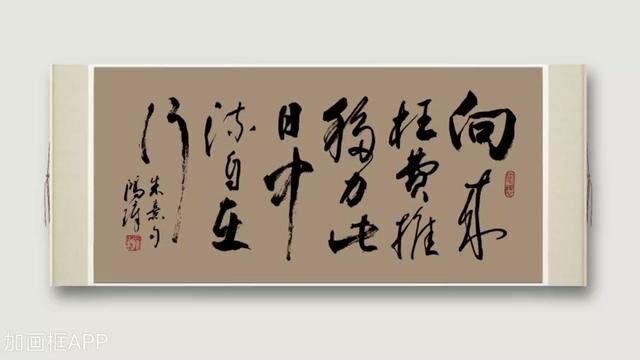 向来
枉费推
移力此
日中
流自在
行
朱熹句
加画框APP